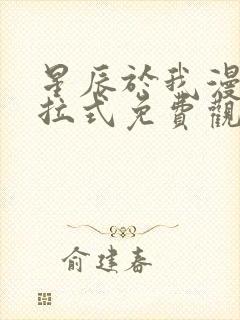 星辰於我漫
拉式免費觀
俞建春